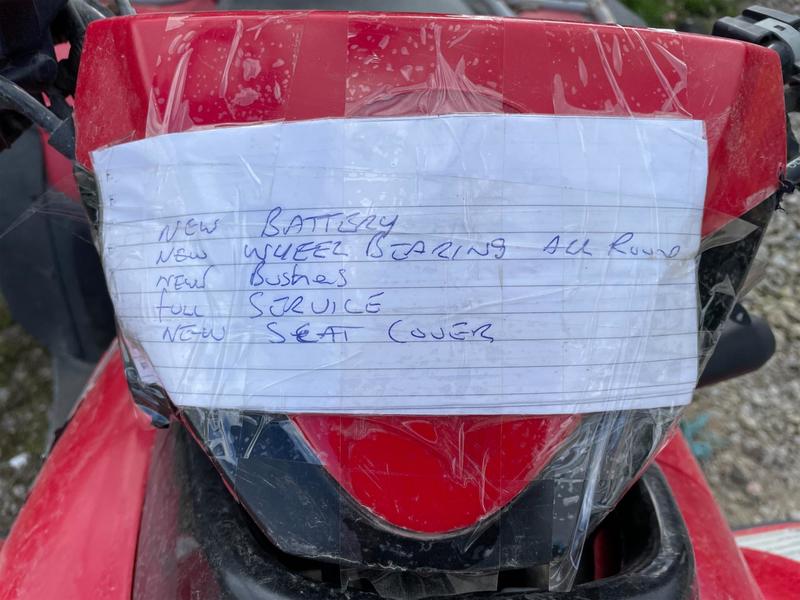 NEW BATTERY
NEW WHEEL BEARING ALL ROUND
NEW Bushes
fULL SERVICE
NEW SEAT COVER